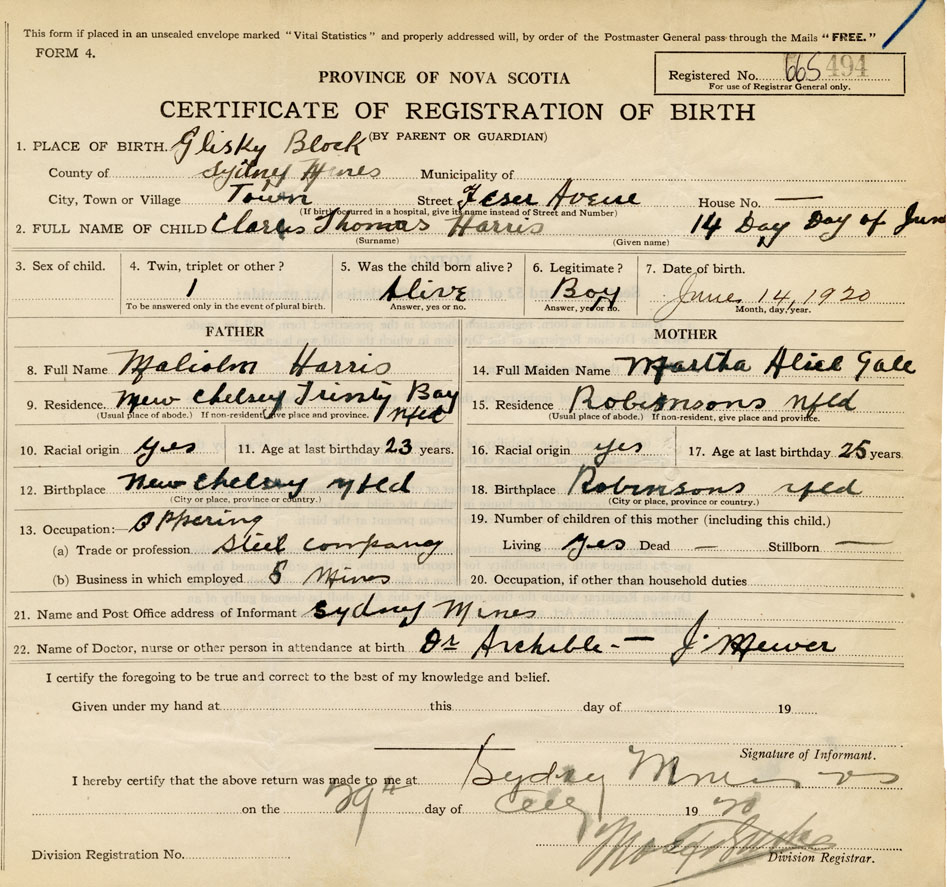 This form if placed in an unsealed envelope marked "Vital Statistics" and properly addressed will, by order of the Postmaster General pass through the Mails "FREE."
FORM 4.
PROVINCE OF NOVA SCOTIA
Registered No. 665 494
For use of Registrar General only.
CERTIFICATE OF REGISTRATION OF BIRTH
(BY PARENT OR GUARDIAN)
1. PLACE OF BIRTH. Glisky Block
County of Sydney Mines Municipality of
City, Town or Village Town Street Feser Avenue House No. —
(If birth occurred in a hospital, give its name instead of Street and Number)
2. FULL NAME OF CHILD Clarles Thomas Harris 14 Day Day of June
(Surname) (Given name)
3. Sex of child. 4. Twin, triplet or other? 5. Was the child born alive? 6. Legitimate? 7. Date of birth.
1 Alive Boy June 14, 1920
To be answered only in the event of plural birth. Answer, yes or no. Answer, yes or no. Month, day, year.
FATHER MOTHER
8. Full Name Malcolm Harris
14. Full Maiden Name Martha Alice Gale
9. Residence. New Chelsey Trinity Bay Nfld
(Usual place of abode.) If non-resident give place and province.
15. Residence Robinsons nfld
(Usual place of abode.) If non-resident, give place and province.
10. Racial origin yes 11. Age at last birthday 23 years.
16. Racial origin yes 17. Age at last birthday 25 years
12. Birthplace New Chelsey nfld
(City or place, province or country.)
18. Birthplace Robinsons nfld
(City or place, province or country.)
13. Occupation:— 
(a) Trade or profession Steel company
(b) Business in which employed S Mines
19. Number of children of this mother (including this child.)
Living yes Dead — Stillborn —
20. Occupation, if other than household duties
21. Name and Post Office address of Informant Sydney Mines
22. Name of Doctor, nurse or other person in attendance at birth Dr Archible — J. Mewer
I certify the foregoing to be true and correct to the best of my knowledge and belief.
Given under my hand at this day of 19
Signature of Informant.
I hereby certify that the above return was made to me at Sydney Mines
on the 29th day of 1920
Division Registration No.
Division Registrar.